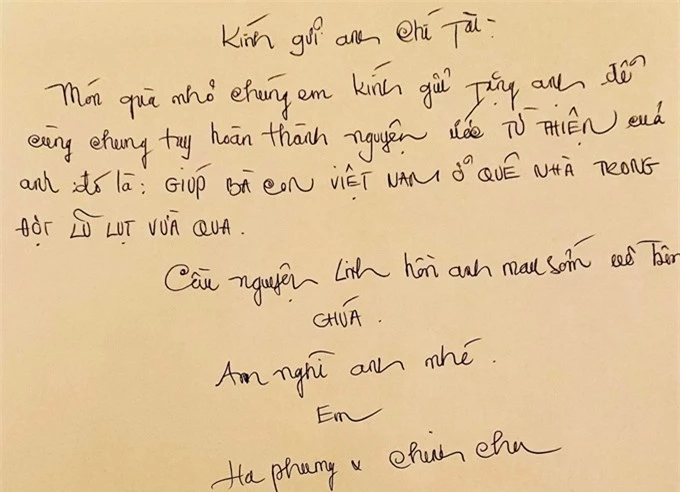 Kính gửi anh Chí Tài:
Món quà nhỏ chúng em kính gửi tặng anh để
cùng chung tay hoàn thành nguyện ước TỪ THIỆN của
anh đó là: GIÚP BÀ CON VIỆT NAM Ở QUÊ NHÀ TRONG
ĐỢT LŨ LỤT VỪA QUA.
Cầu nguyện Linh hồn anh mau sớm về bên
CHÚA.
An nghỉ anh nhé.
Em
Ha phuong &